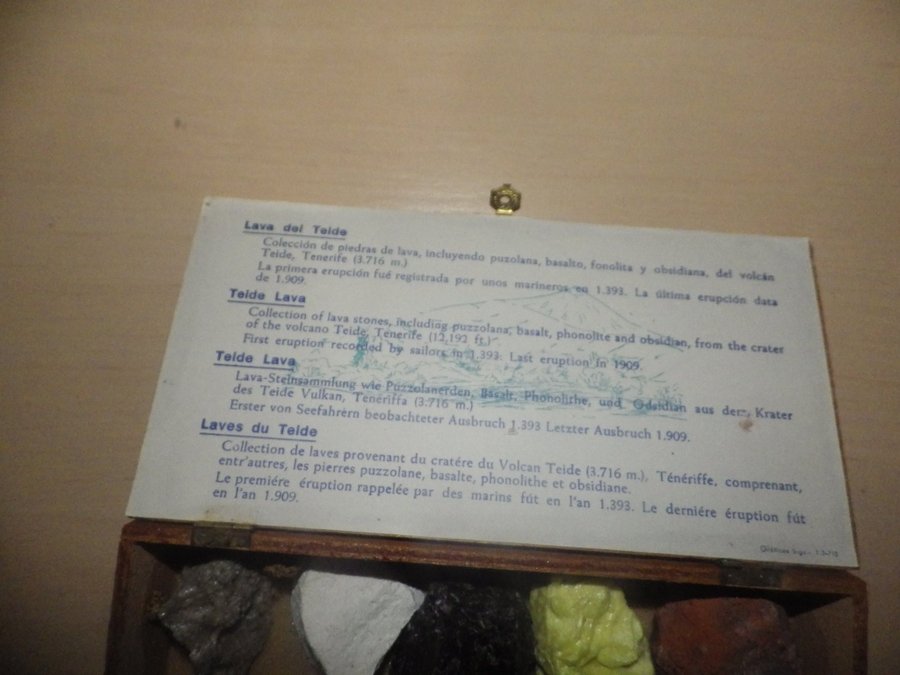 Lava del Teide
Colección de piedras de lava, incluyendo puzolana, basalto, fonolita y obsidiana, del volcán
Teide, Tenerife (3.716 m.)
La primera erupción fué registrada por unos marineros en 1.393. La última erupción data
de 1.909.
Teide Lava
Collection of lava stones, including puzzolana, basalt, phonolite and obsidian, from the crater
of the volcano Teide, Tenerife (12,192 ft.)
First eruption recorded by sailors in 1.393. Last eruption in 1909.
Teide Lava
Lava-Steinsammlung wie Puzzolanerden, Basalt, Phonolithe, und Odsidian aus dem Krater
des Teide Vulkan, Teneriffa (3.716 m.)
Erster von Seefahrern beobachteter Ausbruch 1.393 Letzter Ausbruch 1.909.
Laves du Teide
Collection de laves provenant du cratére du Volcan Teide (3.716 m.), Ténériffe, comprenant,
entr'autres, les pierres puzzolane, basalte, phonolithe et obsidiane.
Le premiére éruption rappelée par des marins fút en l'an 1.393. Le derniére éruption fút
en l'an 1.909.